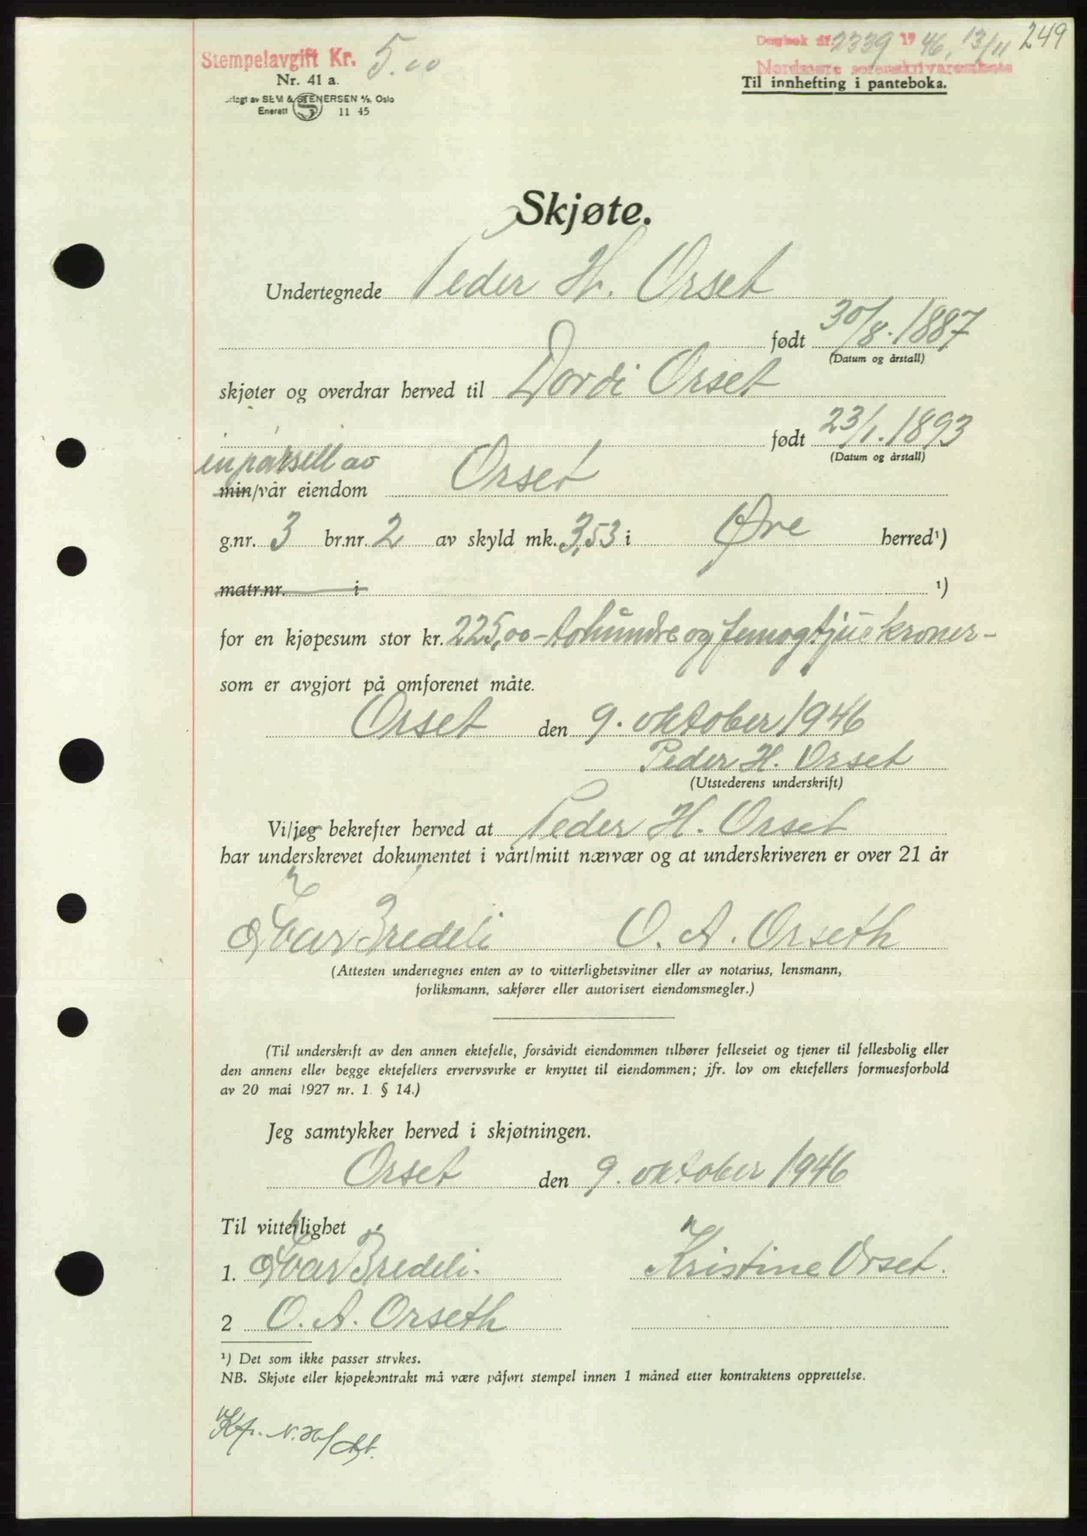 Stempelavgift Kr. 5.00
Dagbok nr. 2339 1946, 13/11 249
Nordmøre sorenskriverembete
Nr. 41 a.
Til innhefting i panteboka.
SEM & STENERSEN A/S, Oslo
Enerett S 11 45
Skjøte.
Undertegnede Peder H. Orset
født 30/8. 1887
(Datum og årstall)
skjøter og overdrar herved til Dordi Orset
født 23/1. 1893
(Datum og årstall)
en parsell av
min/vår eiendom Orset
g.nr. 3 br.nr. 2 av skyld mk. 3,53 i Øre herred¹)
matr.nr. i ¹)
for en kjøpesum stor kr. 225,00 - tohundre og femogtjue kroner -
som er avgjort på omforenet måte.
Orset den 9. oktober 1946
Peder H. Orset
(Utstederens underskrift)
Vi/jeg bekrefter herved at Peder H. Orset
har underskrevet dokumentet i vårt/mitt nærvær og at underskriveren er over 21 år
Ivar Bredeli O. A. Orseth
(Attesten undertegnes enten av to vitterlighetsvitner eller av notarius, lensmann,
forliksmann, sakfører eller autorisert eiendomsmegler.)
(Til underskrift av den annen ektefelle, forsåvidt eiendommen tilhører felleseiet og tjener til fellesbolig eller
den annens eller begge ektefellers ervervsvirke er knyttet til eiendommen; jfr. lov om ektefellers formuesforhold
av 20 mai 1927 nr. 1 § 14.)
Jeg samtykker herved i skjøtningen.
Orset den 9. oktober 1946
Til vitterlighet
1. Ivar Bredeli. Kristine Orset.
2 O. A. Orseth
¹) Det som ikke passer strykes.
NB. Skjøte eller kjøpekontrakt må være påført stempel innen 1 måned etter kontraktens opprettelse.